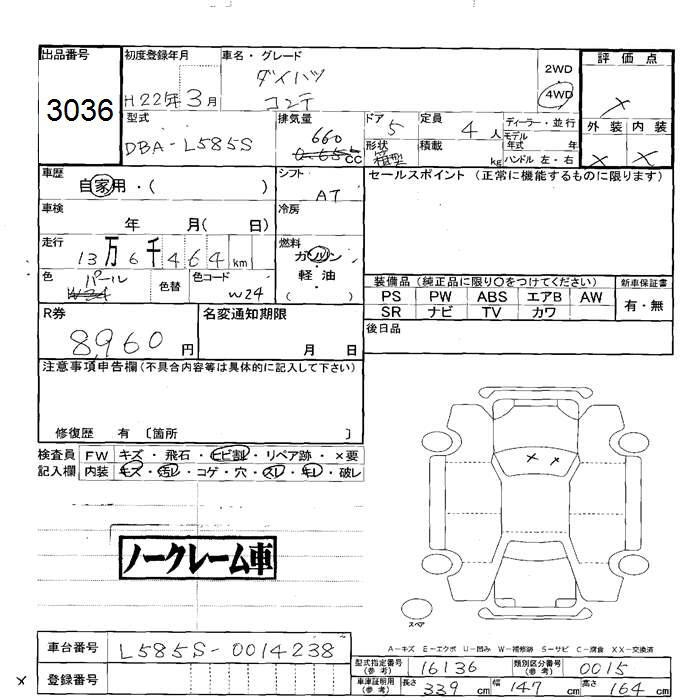 出品番号
3036
初度登録年月
H22年3月
車名・グレード
ダイハツ
コンテ
2WD
4WD
評価点
×
外装 内装
× ×
型式
DBA-L585S
排気量
660
cc
ドア
5
形状
箱型
定員
4人
積載
kg
ディーラー・並行
モデル年式 年
ハンドル 左・右
車歴
自家用・( )
シフト
AT
セールスポイント (正常に機能するものに限ります)
車検
年 月( 日)
冷房
走行
13万6千464km
燃料
ガソリン
・
軽・油
( )
色
パール
W24
色替
色コード
W24
装備品 (純正品に限り○をつけてください)
PS PW ABS エアB AW
SR ナビ TV カワ
新車保証書
有・無
R券
8,960円
名変通知期限
月 日
後日品
注意事項申告欄(不具合内容等は具体的に記入して下さい)
修復歴 有 〔箇所 〕
検査員記入欄
FW キズ・飛石・ヒビ割・リペア跡・×要
内装 キズ・汚レ・コゲ・穴・スレ・キレ・破レ
× ×
ノークレーム車
スペア
A-キズ E-エクボ U-凹み W-補修跡 S-サビ C-腐食 XX-交換済
車台番号
L585S-0014238
登録番号
×
型式指定番号
(参考)
16136
類別区分番号
(参考)
0015
車庫証明用
(参考)
長さ 339cm 幅 147cm 高さ 164cm